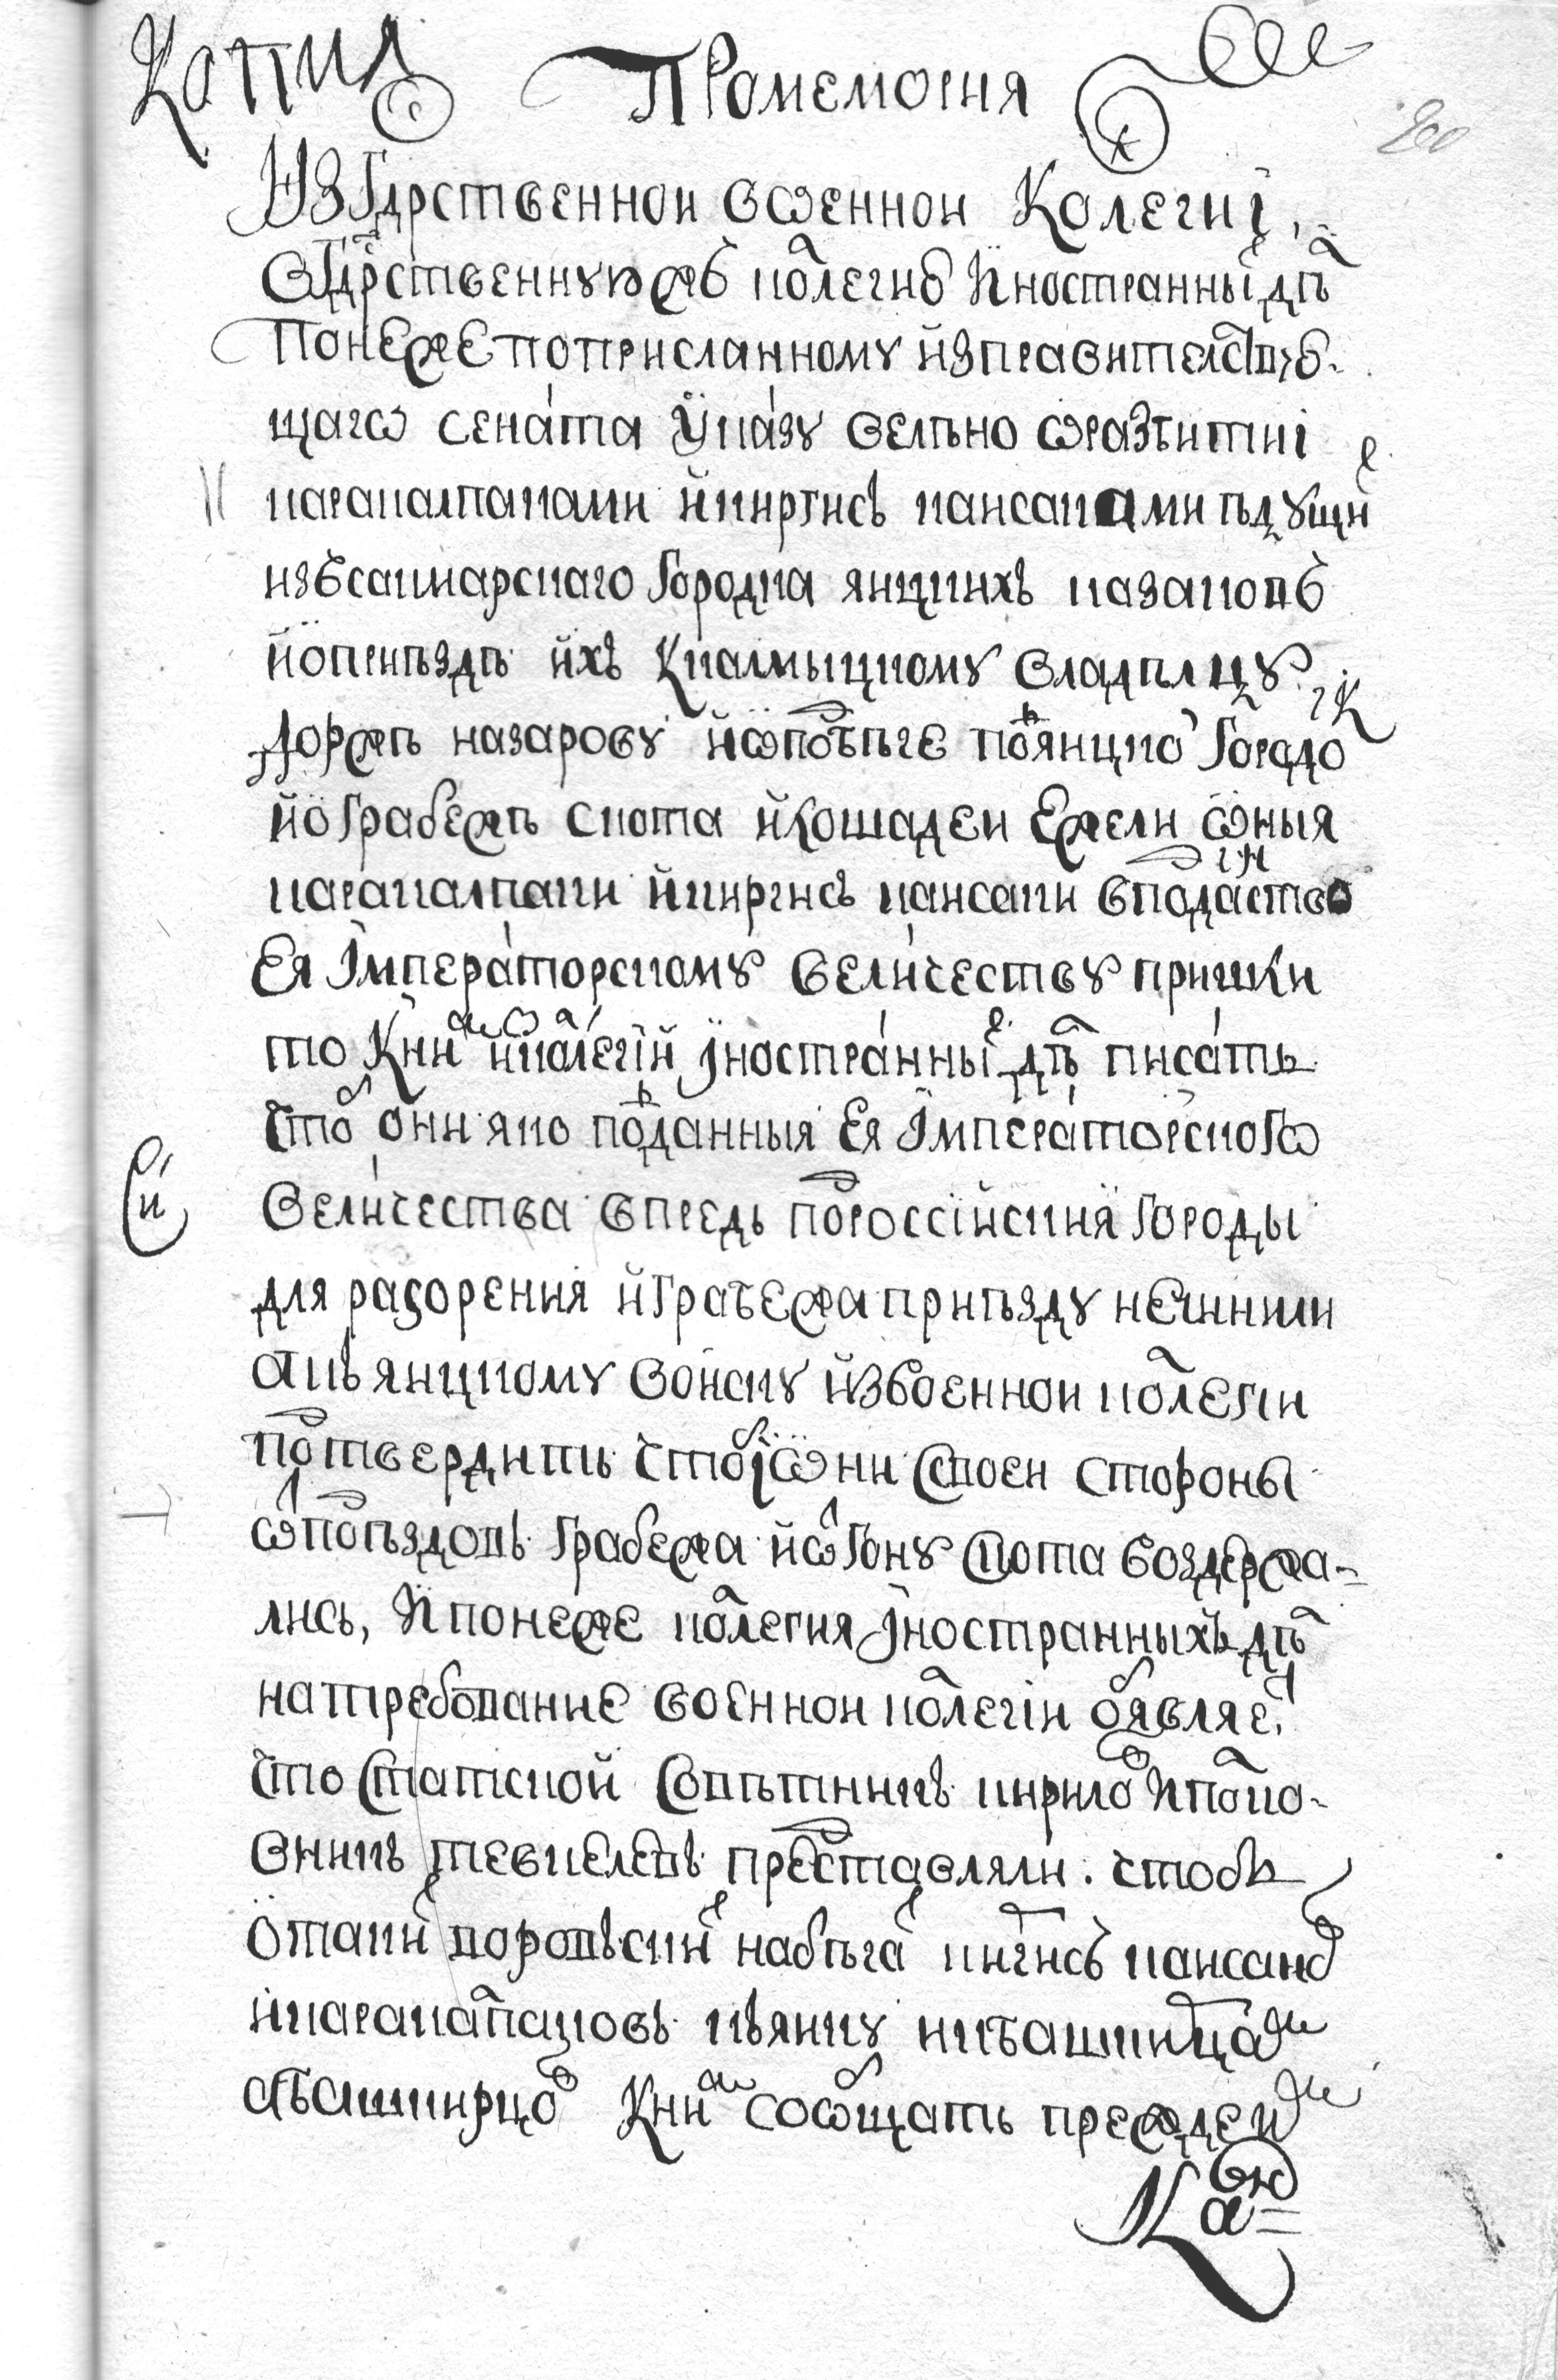 Копия
Промемория
200
Из Гдрственной воẽнной Колегиі,
вГдрственнуюжъ колегию Иностранныхъ дѣлъ
Понеже поприсланному изправителствую-
щаго сената Указу велѣно ѡразбитиі
каракалпаками икиргисъ каисаками ѣдущих
изъсакмарского Городка яицкихъ казаковъ
иоприѣздѣ ихъ Ккалмыцкому владѣлцу
Доржѣ назарову иѡпобѣге подъяицкой Городо
иограбежѣ скота илошадей Ежели ѡныя
каракалпаки икиргисъ каисаки вподданство
Ея Императорскому величеству пришли
то Кним исколегий Иностранных дѣл писать
чтоб они яко подданныя Ея Императорского
величества впредь подроссійския Городы
для разорения играбежа приѣзду нечинили
акъяицкому войску извоенной колегіи
подтвердить чтобъ іѡни своей стороны
ѿподъѣздовъ грабежа иѿгону скота воздержа-
лись, Ипонеже колегия Іностранныхъ дѣл
натребование военной колегіи объявляет
что Статской Советникъ кирилов Иполко-
вникъ тевкелевъ представляли. чтобъ
отаких воровъских набѣгах киргисъ каисаков
икаракалпацковъ къяику икбашкирцам
абашкирцов Кним сообщать прежде им